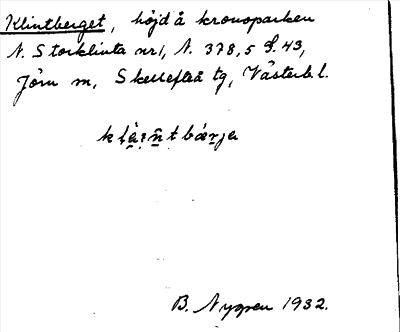 Klintberget, höjd å kronoparken
N. Storklinta nr 1, N. 378,5 S. 43,
Jörn sn, Skellefteå tg, Västerb. l.
B. Nygren 1932.